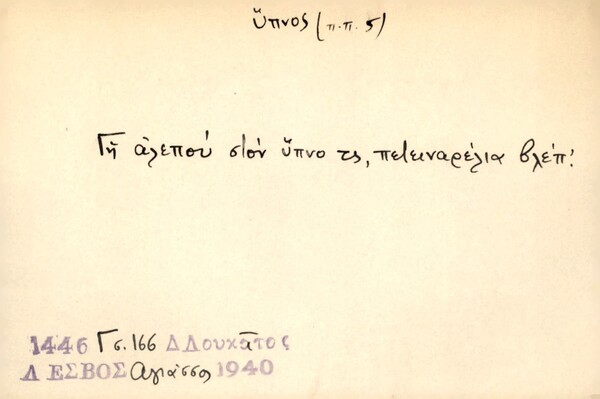 ὕπνος (π.π. 5)
Γἢ ἀλεποὺ στὸν ὕπνο τς, πετειναρέλια βλέπ'.
1446 Γ σ. 166 Δ Δουκᾶτος
ΛΕΣΒΟΣ Ἀγιάσσος 1940